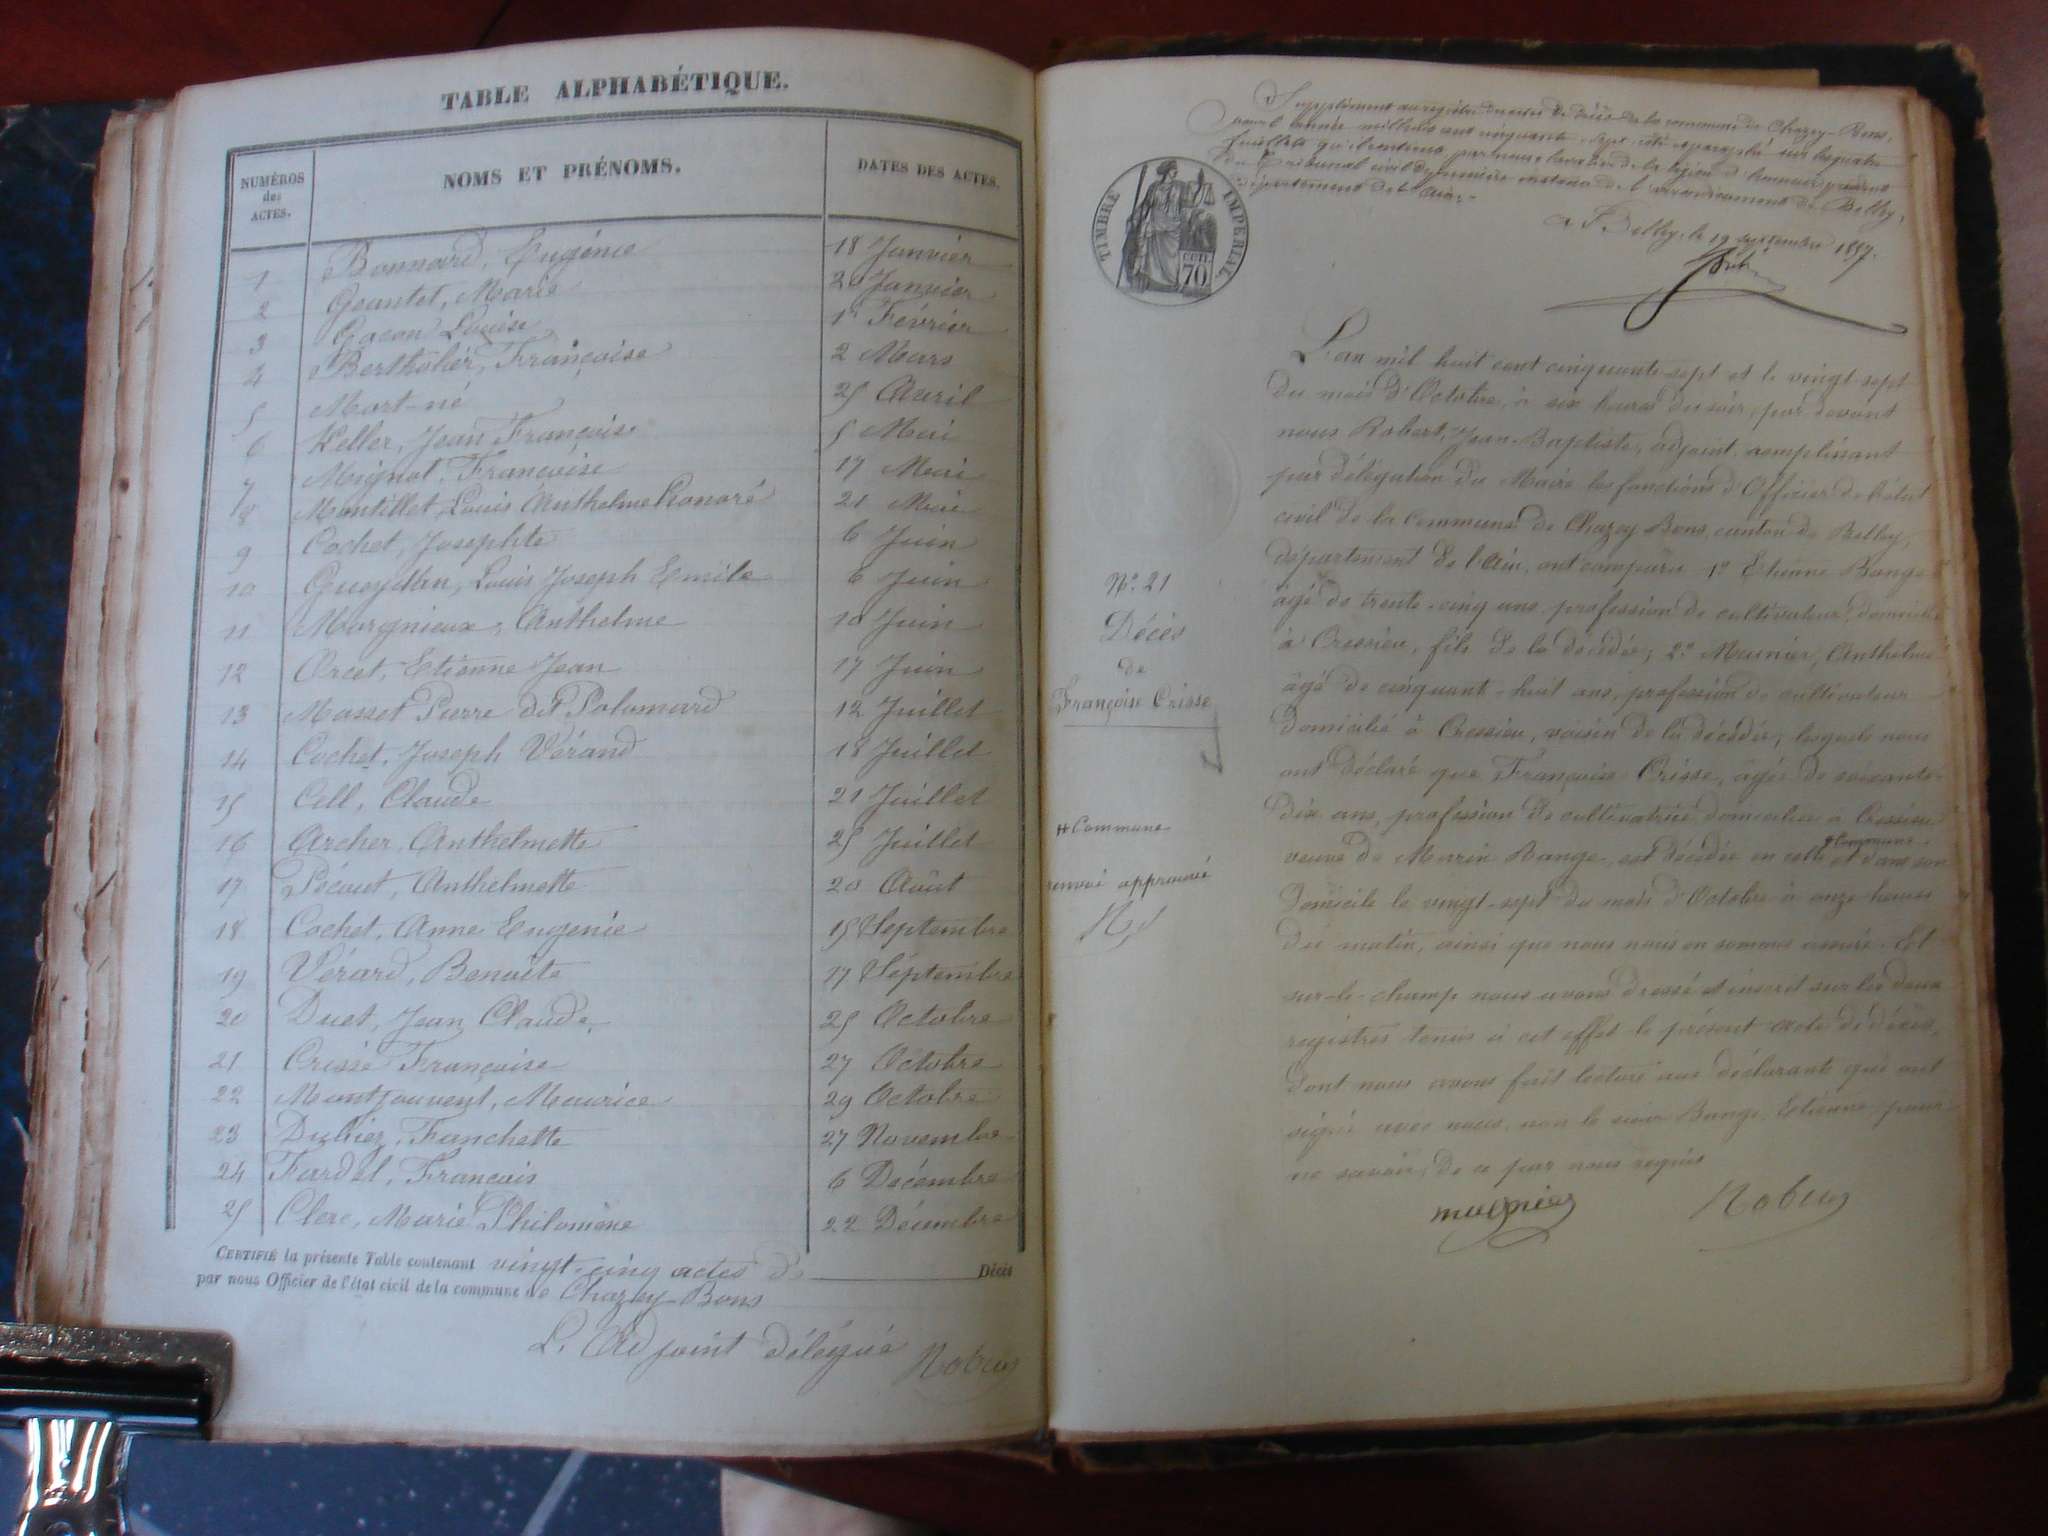 TABLE ALPHABÉTIQUE.
NUMÉROS des ACTES.
NOMS ET PRÉNOMS.
DATES DES ACTES.
1 Bonnard, Eugénie 18 Janvier
2 Geantet, Marie 20 Janvier
3 Gacon Louise 1r Février
4 Berthelier, Françoise 2 Mars
5 Mort-né 25 Avril
6 Keller, Jean François 5 Mai
7 Mignot, Françoise 17 Mai
8 Montillet, Louis Anthelme Honoré 21 Mai
9 Cochet, Josephte 6 Juin
10 Louis Joseph Emile 6 Juin
11 Margnieux, Anthelme 10 Juin
12 Orcet, Etienne Jean 17 Juin
13 Masset Pierre dit Palamard 12 Juillet
14 Cochet, Joseph Vérand 18 Juillet
15 Cell, Claude 21 Juillet
16 Archer, Anthelmette 25 Juillet
17 Pécout, Anthelmette 20 Août
18 Cochet, Anne Eugénie 15 Septembre
19 Vérard, Benoîte 17 Septembre
20 Duet, Jean Claude 25 Octobre
21 Crisse Françoise 27 Octobre
22 Montjouvent, Maurice 29 Octobre
23 Fanchette 27 Novembre
24 Fardel, François 6 Décembre
25 Clerc, Marie Philomène 22 Décembre
CERTIFIÉ la présente Table contenant vingt-cinq actes de Décès
par nous Officier de l'état civil de la commune de Chazey-Bons
L'Adjoint délégué
Robert
Supplément au registre des actes de décès de la commune de Chazey-Bons,
pour l'année mil huit cent cinquante-sept, coté et paraphé sur les quatre
feuillets qu'il contient par nous chevalier de la légion d'honneur président
du Tribunal civil de première instance de l'arrondissement de Belley,
département de l'Ain.
à Belley, le 19 septembre 1857.
TIMBRE IMPÉRIAL
70 CENT
L'an mil huit cent cinquante-sept et le vingt-sept
du mois d'Octobre, à six heures du soir, par devant
nous Robert, Jean-Baptiste, adjoint, remplissant
par délégation du Maire les fonctions d'Officier de l'état
civil de la commune de Chazey-Bons, canton de Belley,
département de l'Ain, ont comparu 1° Etienne Bange
âgé de trente-cinq ans, profession de cultivateur, domicilié
à Cressieu, fils de la décédée; 2° Meunier, Anthelme
âgé de cinquante-huit ans, profession de cultivateur
domicilié à Cressieu, voisin de la décédée; lesquels nous
ont déclaré que Françoise Crisse, âgée de soixante-
dix ans, profession de cultivatrice domiciliée à Cressieu
veuve de Marin Bange, est décédée en cette # commune et dans son
domicile le vingt-sept du mois d'Octobre à onze heures
du matin, ainsi que nous nous en sommes assuré. Et
sur-le-champ nous avons dressé et inscrit sur les deux
registres tenus à cet effet le présent acte de décès,
dont nous avons fait lecture aux déclarants qui ont
signé avec nous, non le sieur Bange, Etienne pour
ne savoir, de ce par nous requis
Robert
N° 21
Décès
de
Françoise Crisse
# Commune
renvoi approuvé